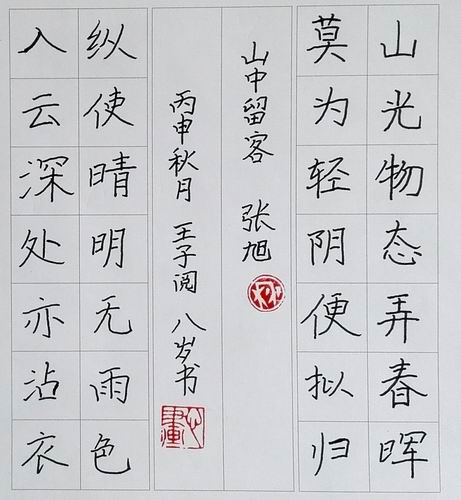 山光物态弄春晖
莫为轻阴便拟归
山中留客 张旭
丙申秋月 王子阅 八岁书
纵使晴明无雨色
入云深处亦沾衣